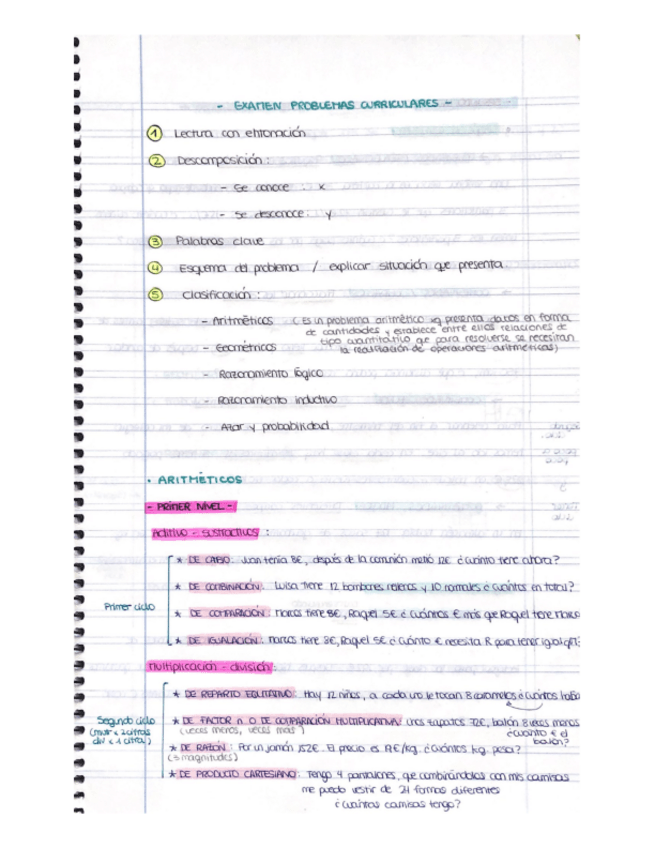 - EXAMEN PROBLEMAS CURRICULARES -
1 Lectura con entonación
2 Descomposición:
- Se conoce : x
- Se desconoce: y
3 Palabras clave
4 Esquema del problema / explicar situación que presenta.
5 Clasificación:
- Aritméticos (Es un problema aritmético xq presenta datos en forma
de cantidades y establece entre ellos relaciones de
tipo cuantitativo que para resolverse se necesitan
la realización de operaciones aritméticas)
- Geométricos
- Razonamiento lógico
- Razonamiento inductivo
- Azar y probabilidad
· ARITMÉTICOS
- PRIMER NIVEL -
Aditivo - sustractivos :
Primer ciclo
* DE CAMBIO: Juan tenía 8€, después de la comunión metió 12€ ¿cuánto tiene ahora?
* DE COMBINACIÓN: Luisa tiene 12 bombones rellenos y 10 normales ¿cuántos en total?
* DE COMPARACIÓN: Marcos tiene 8€, Raquel 5€ ¿cuántos € más que Raquel tiene Marco
* DE IGUALACIÓN: Marcos tiene 8€, Raquel 5€ ¿cuánto € necesita R para tener igual q M?
Multiplicación - división:
Segundo ciclo
(mult x 2 cifras
div x 1 cifra)
* DE REPARTO EQUITATIVO: Hay 12 niños, a cada uno le tocan 8 caramelos ¿cuántos había
* DE FACTOR n. O DE COMPARACIÓN MULTIPLICATIVA: unos zapatos 72€, balón 8 veces menos
(veces menos, veces más) ¿cuánto € el
balón?
* DE RAZÓN: Por un jamón 152€. El precio es 19€/kg. ¿cuántos kg. pesa?
(3 magnitudes)
* DE PRODUCTO CARTESIANO: Tengo 4 pantalones, que combinándolos con mis camisas
me puedo vestir de 24 formas diferentes
¿cuántas camisas tengo?